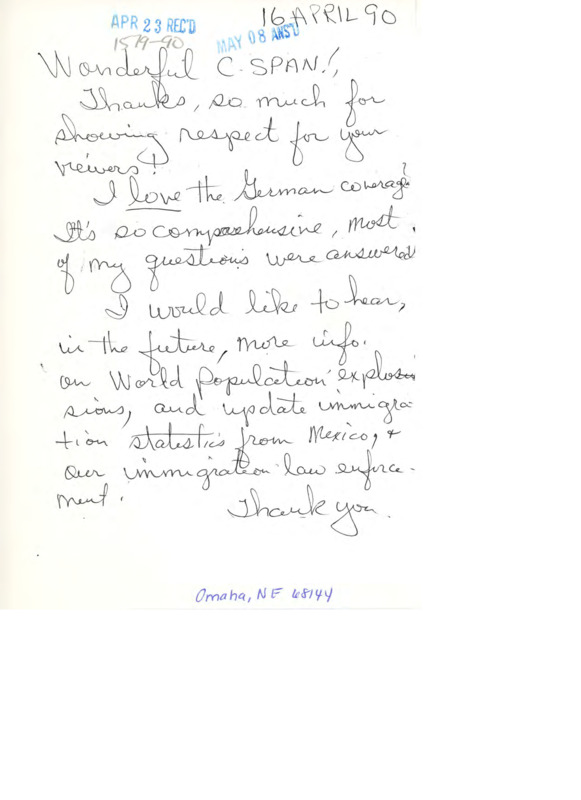 16 APRIL 90
APR 23 REC'D
1579-90
MAY 08 ANS'D
Wonderful C-SPAN!,
Thanks, so much for
showing respect for your
viewers!
I love the German coverage
It's so comprehensive, most
of my questions were answered
I would like to hear,
in the future, more info.
on World population explo
sions, and update immigra
tion statistics from Mexico, +
our immigration law enforce-
ment.
Thank you.
Omaha, NE 68144